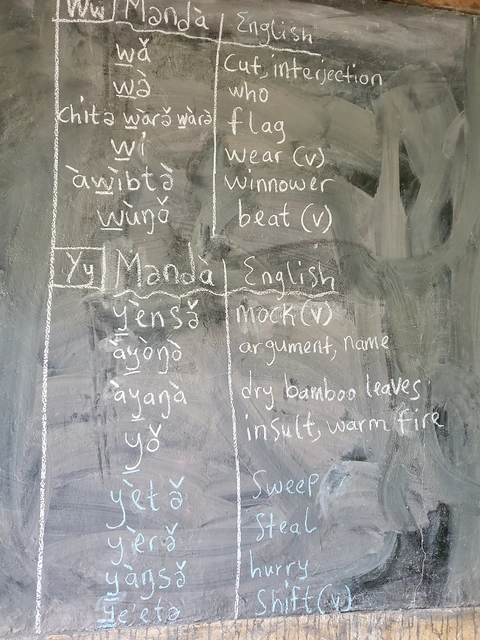 Ww Mandà English
wǎ Cut, interjection
wà who
chitə wàrə̌ wàrə̀ flag
wi wear (v)
àwìbtə̀ winnower
wùŋǒ beat (v)
Yy Mandà English
yènsə̌ mock (v)
àyòŋò argument, name
àyaŋà dry bamboo leaves
yǒ insult, warm fire
yètə̌ Sweep
yèrə̌ Steal
yàŋsə̌ hurry
ye'etə Shift (v)